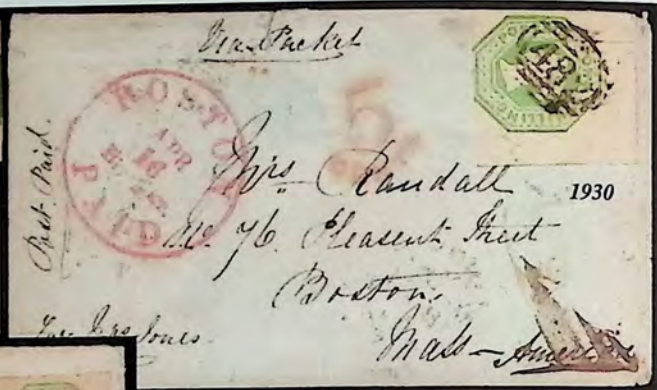 Via Packet
POST
ONE
SHILLING
48
BOSTON
APR
16
PAID
5
Post Paid.
Mrs. Randall
1930
No. 76. Pleasent Street
Boston,
Mass - America
Jones